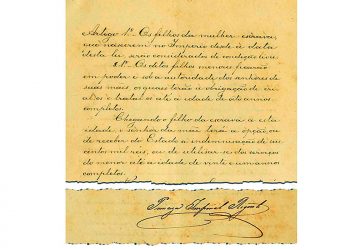 Artigo 1º Os filhos da mulher escrava,
que nascerem no Imperio desde a data
desta lei, serão considerados de condição livre.
§ 1º Os ditos filhos menores ficarão
em poder e sob a autoridade dos senhores de
suas mãis, os quaes terão a obrigação de cri-
al-os e tratal-os até a idade de oito annos
completos.
Chegando o filho da escrava a esta
idade, o senhor da mãi terá a opção ou
de receber do Estado a indemnisação de seis
centos mil reis, ou de utilisar-se dos serviços
do menor até a idade de vinte e um annos
completos.
Princeza Imperial Regente